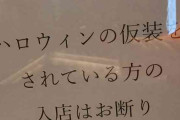 ハロウィンの仮装を
されている方の
入店はお断り